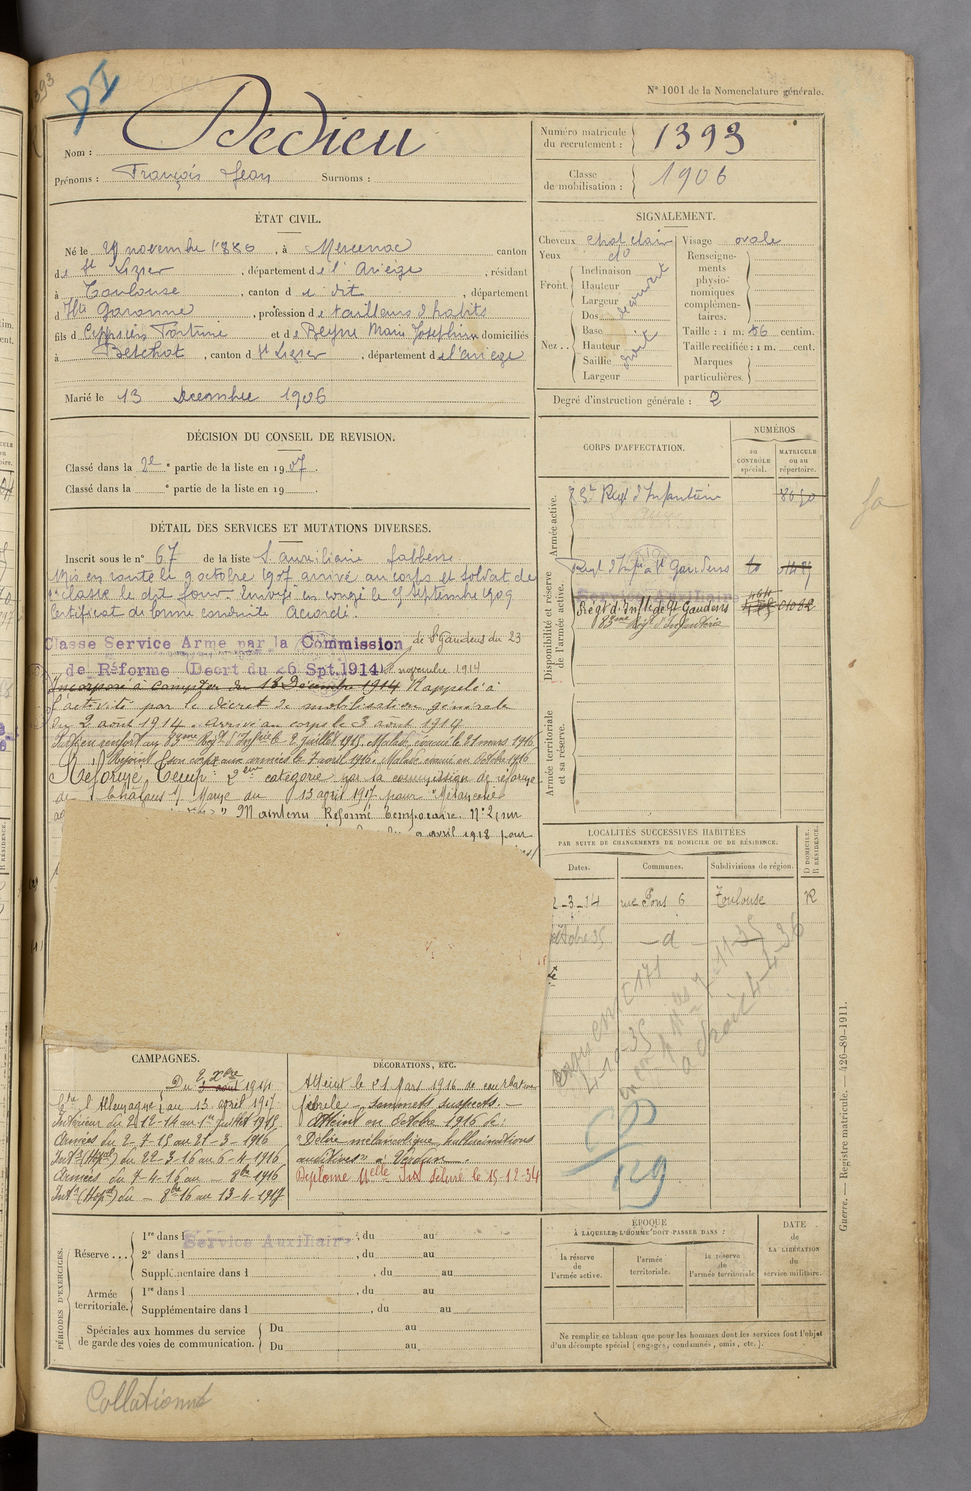 N° 1001 de la Nomenclature générale.
Nom : Dedieu
Prénoms : François Jean Surnoms :
Numéro matricule du recrutement : 1393
Classe de mobilisation : 1906
ÉTAT CIVIL.
Né le 29 novembre 1886, à Mercenac canton
de St Lizier, département de l'Ariège, résidant
à Toulouse, canton d u dit, département
d Hte Garonne, profession de tailleur d'habits
fils d et de Beyne Marie Josephine domiciliés
à Betchat, canton d St Lizier, département de l'ariege
Marié le 13 Decembre 1906
SIGNALEMENT.
Cheveux chat clair
Yeux do
Front. Inclinaison
Hauteur
Largeur
Nez.. Dos
Base
Hauteur
Saillie
Largeur
droit
Visage ovale
Renseignements physionomiques complémentaires.
Taille : 1 m. 56 centim.
Taille rectifiée : 1 m. cent.
Marques particulières.
Degré d'instruction générale : 2
DÉCISION DU CONSEIL DE REVISION.
Classé dans la 2e partie de la liste en 1907.
Classé dans la ° partie de la liste en 19
CORPS D'AFFECTATION.
NUMÉROS
au CONTRÔLE spécial.
MATRICULE ou au répertoire.
Armée active.
83e Regt d'Infanterie
Disponibilité et réserve de l'armée active.
Regt d'Infie à St Gaudens
Service Auxiliaire
Régt d'Inflie de St Gaudens
83ème Rég. d'Infanterie
Armée territoriale et sa réserve.
DÉTAIL DES SERVICES ET MUTATIONS DIVERSES.
Inscrit sous le n° 67 de la liste S. auxiliaire faiblesse
Mis en route le 9 octobre 1907 arrivé au corps et soldat de
2e classe le dit jour. Envoyé en congé le 9 septembre 1909
Certificat de bonne conduite Accordé.
Classe Service Armé par la Commission de St Gaudens du 23
de Réforme (Décrt du 26 Spt. 1914) novembre 1914
Incorporé à compter du 18 Décembre 1914 Rappelé à
l'activité par le décret de mobilisation générale
du 2 août 1914. Arrivé au corps le 3 août 1914
Passé en renfort au 83ème Régt d'Infrie le 2 juillet 1915. Malade évacué le 21 mars 1916
Rejoint son corps aux armées le 7 avril 1916. Malade évacué en Octobre 1916
Réformé Temp. 2ème catégorie par la commission de réforme
de Châlons s/ Marne du 13 avril 1917 pour "Mélancolie
Maintenu Réformé temporaire. N° 2 par
avril 1918 pour
LOCALITÉS SUCCESSIVES HABITÉES
PAR SUITE DE CHANGEMENTS DE DOMICILE OU DE RÉSIDENCE.
Dates.
Communes.
Subdivisions de région.
D DOMICILE. R RÉSIDENCE.
2-3-14 rue Pons 6 Toulouse R
octobre 35 — d —
4-10-35
CAMPAGNES.
Du 2 Xbre 1914
Ctre l'Allemagne au 13 avril 1917
Intérieur du 2-12-14 au 1er juillet 1915
Armées du 2-7-15 au 21-3-1916
Intr (Hopal) du 22-3-16 au 6-4-1916
Armées du 7-4-16 au - 8bre 1916
Intr (Hopal) du — 8bre 16 au 13-4-1917
DÉCORATIONS, ETC.
Atteint le 21 Mars 1916 de courbature
fébrile - sommets suspects. -
Atteint en Octobre 1916 de :
"Délire mélancolique, hallucinations
auditives" à Verdun.
PÉRIODES D'EXERCICES.
Réserve... 1re dans l Service Auxiliaire, du au
2e dans l, du au
Supplémentaire dans l, du au
Armée territoriale. 1re dans l, du au
Supplémentaire dans l, du au
Spéciales aux hommes du service de garde des voies de communication. Du au
Du au
ÉPOQUE
À LAQUELLE L'HOMME DOIT PASSER DANS :
la réserve de l'armée active.
l'armée territoriale.
la réserve de l'armée territoriale
DATE de LA LIBÉRATION du service militaire.
Ne remplir ce tableau que pour les hommes dont les services font l'objet
d'un décompte spécial (engagés, condamnés, omis, etc.).
Guerre. — Registre matricule. — 426-89-1911.
Collationné